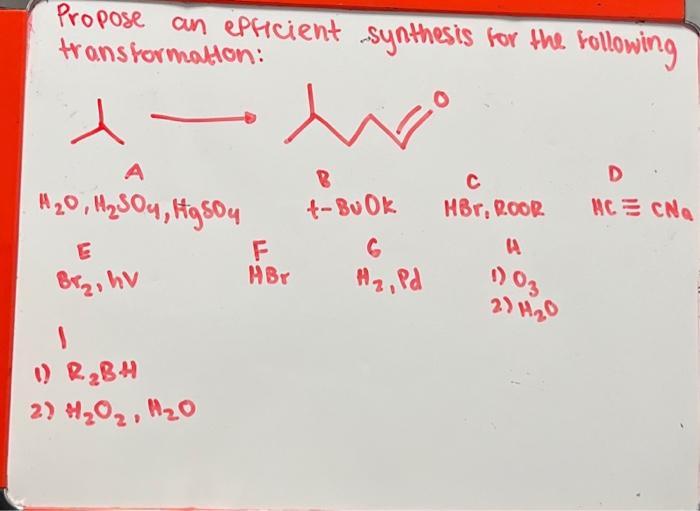 Propose an efficient synthesis for the following
transformation:
O
A B C D
H2O, H2SO4, HgSO4 t-BuOk HBr, ROOR HC ≡ CNa
E F G H
Br2, hv HBr H2, Pd 1) O3
2) H2O
I
1) R2BH
2) H2O2, H2O